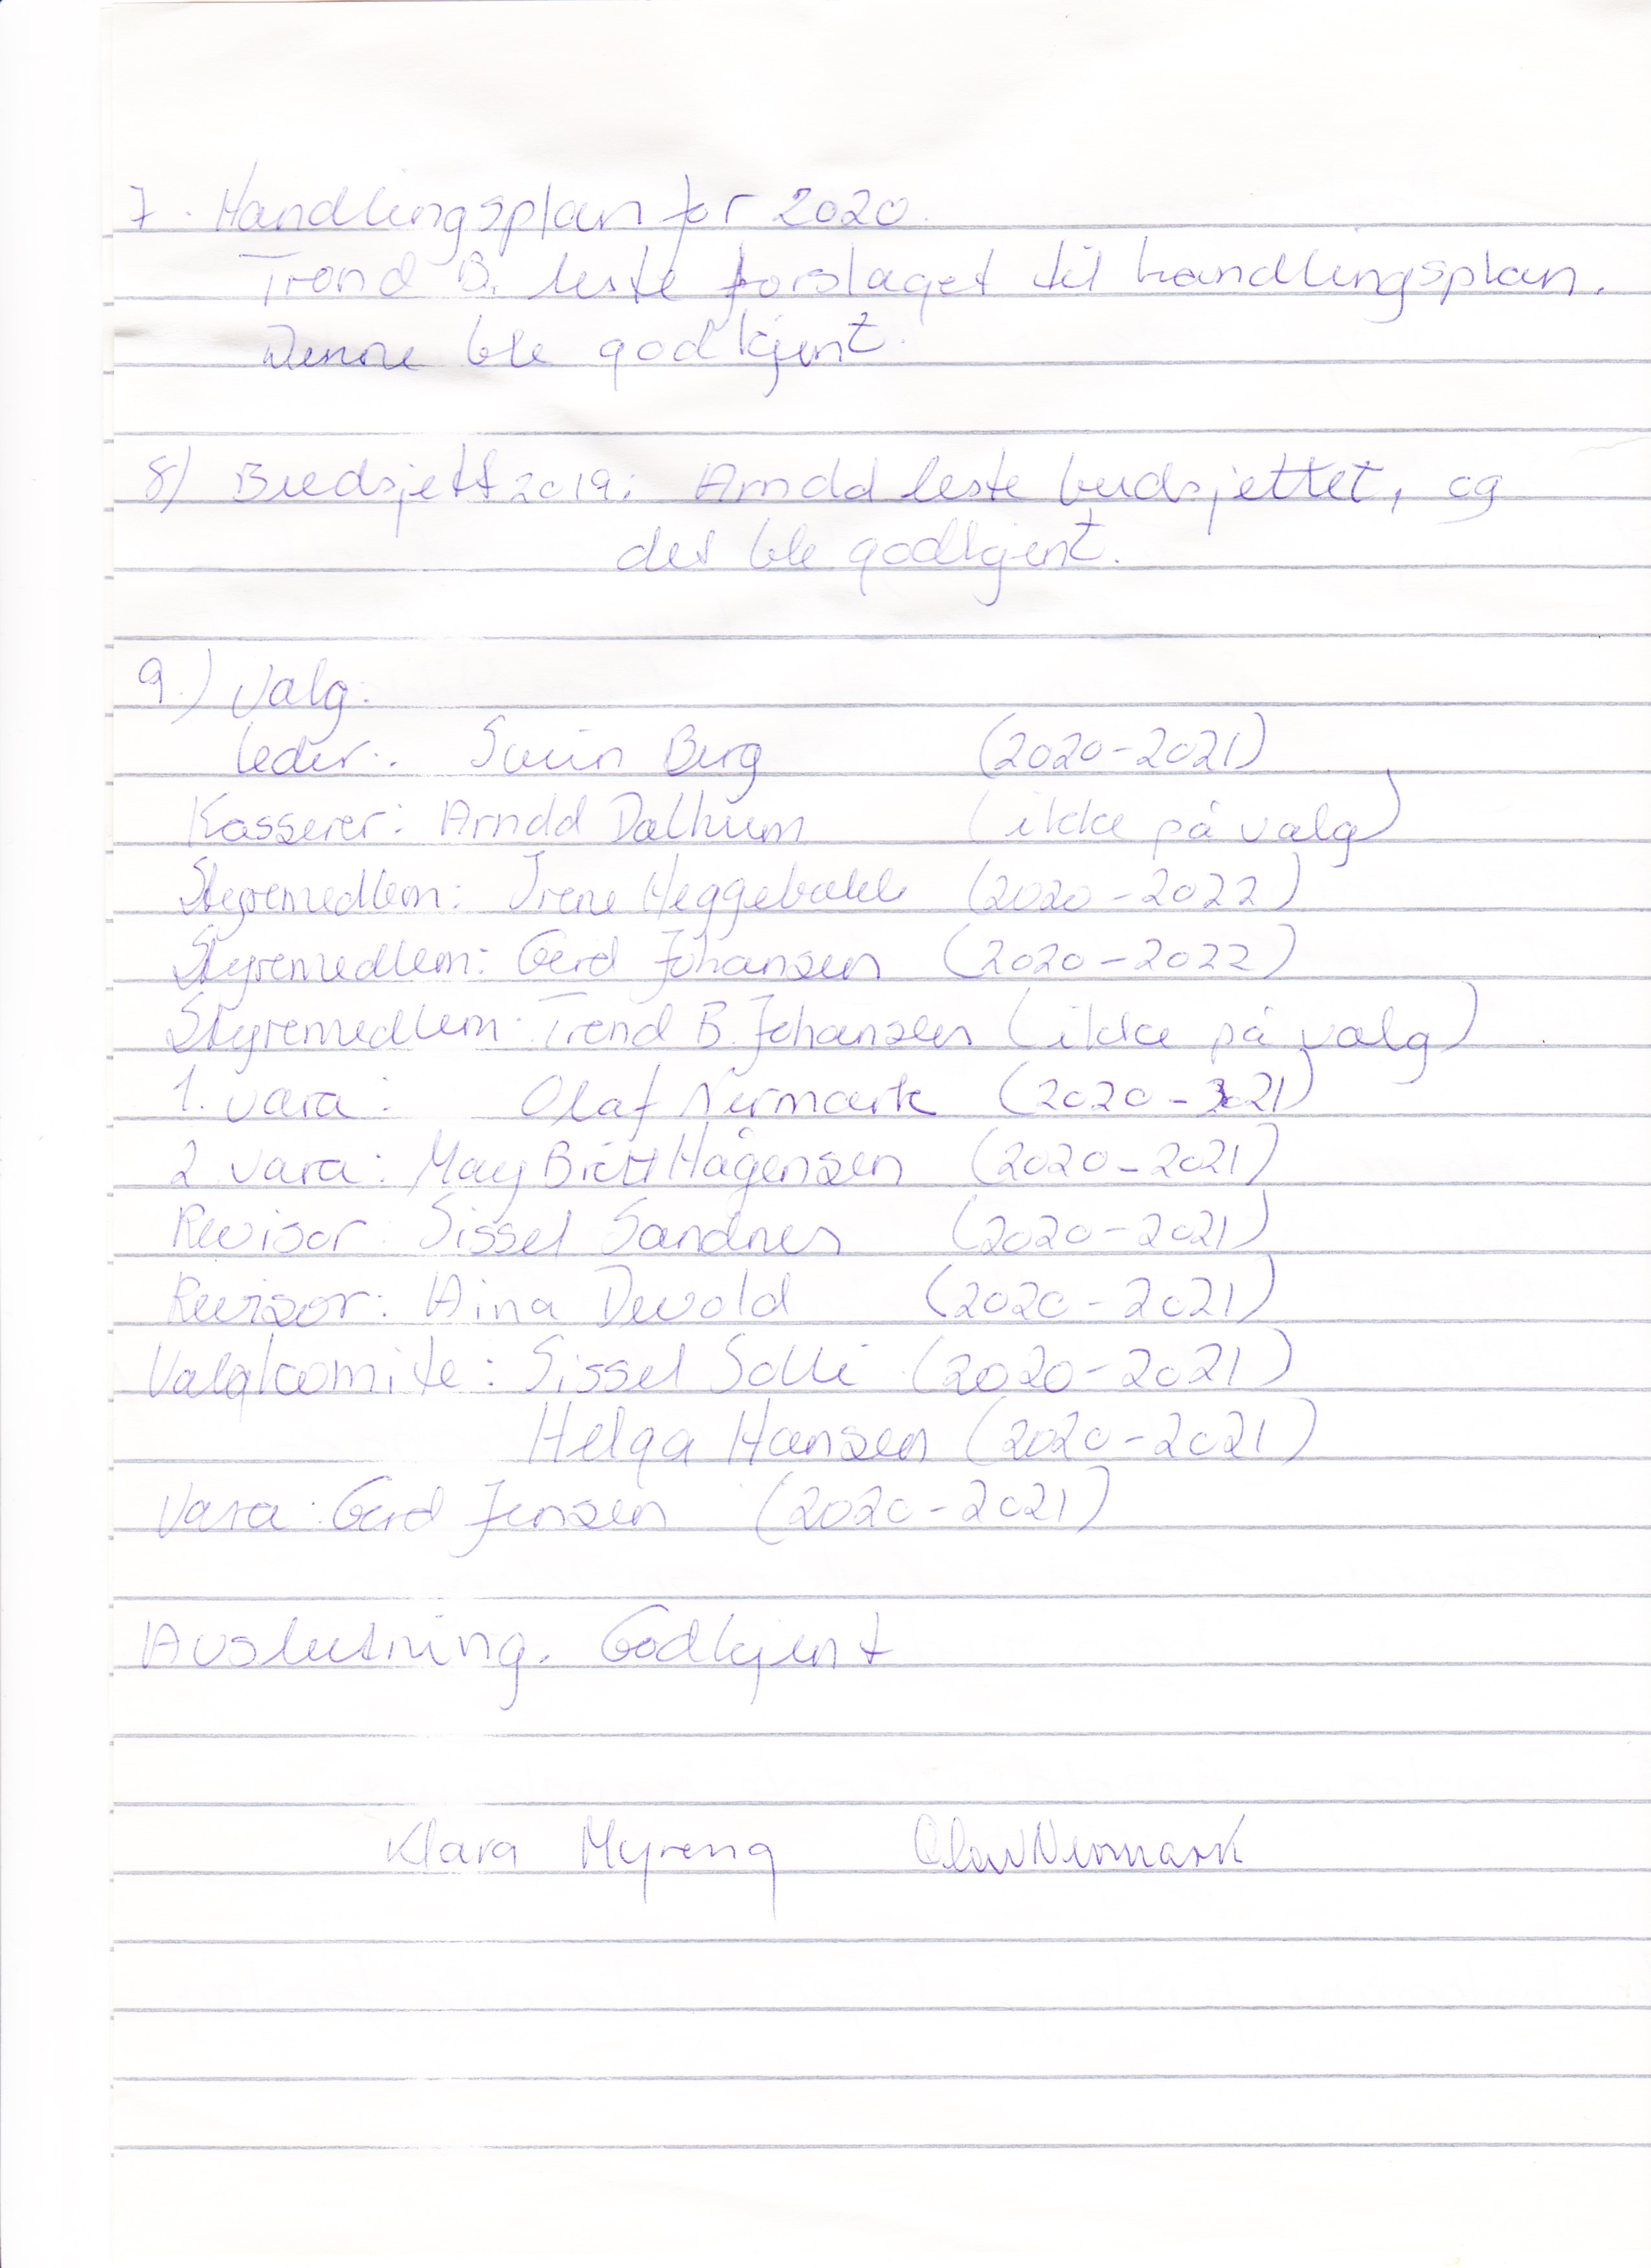 7. Handlingsplan for 2020.
Trond B. leste forslaget til handlingsplan.
Denne ble godkjent.
8) Budsjett 2019: Arnold leste budsjettet, og
det ble godkjent.
9.) Valg:
Leder: Svein Berg (2020-2021)
Kasserer: Arnold Dalhum (ikke på valg)
Styremedlem: Irene (2020-2022)
Styremedlem: Gerd Johansen (2020-2022)
Styremedlem: Trond B. Johansen (ikke på valg)
1. vara: Olaf Nermark (2020-2021)
2 vara: May Britt Hågensen (2020-2021)
Revisor: Sissel Sandnes (2020-2021)
Revisor: Aina Devold (2020-2021)
Valgkomite: Sissel Solli (2020-2021)
Helga Hansen (2020-2021)
Vara: Gerd Jensen (2020-2021)
Avslutning. Godkjent
Klara Myreng Olav Nermark